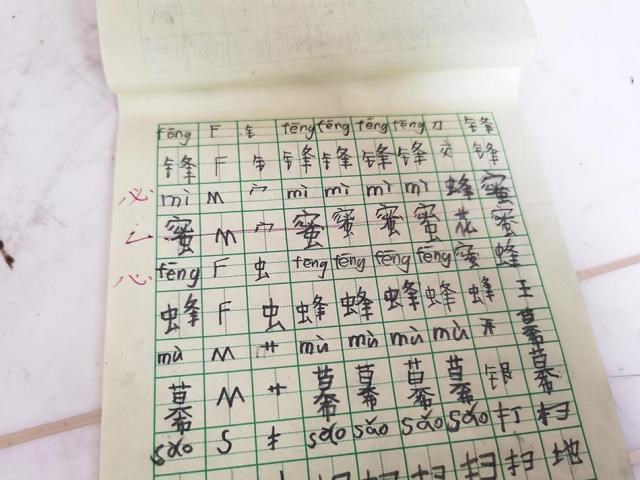 fēng F 钅 fēng fēng fēng fēng 刀 锋
锋 F 钅 锋 锋 锋 锋 交 锋
必 mì M 宀 mì mì mì mì 蜂 蜜
蜜 M 宀 蜜 蜜 蜜 蜜 花 蜜
心 fēng F 虫 fēng fēng fēng fēng 蜜 蜂
蜂 F 虫 蜂 蜂 蜂 蜂 蜂 王
mù M 艹 mù mù mù mù 开 幕
幕 M 艹 幕 幕 幕 幕 银 幕
sǎo S 扌 sǎo sǎo sǎo sǎo 打 扫
扫 地